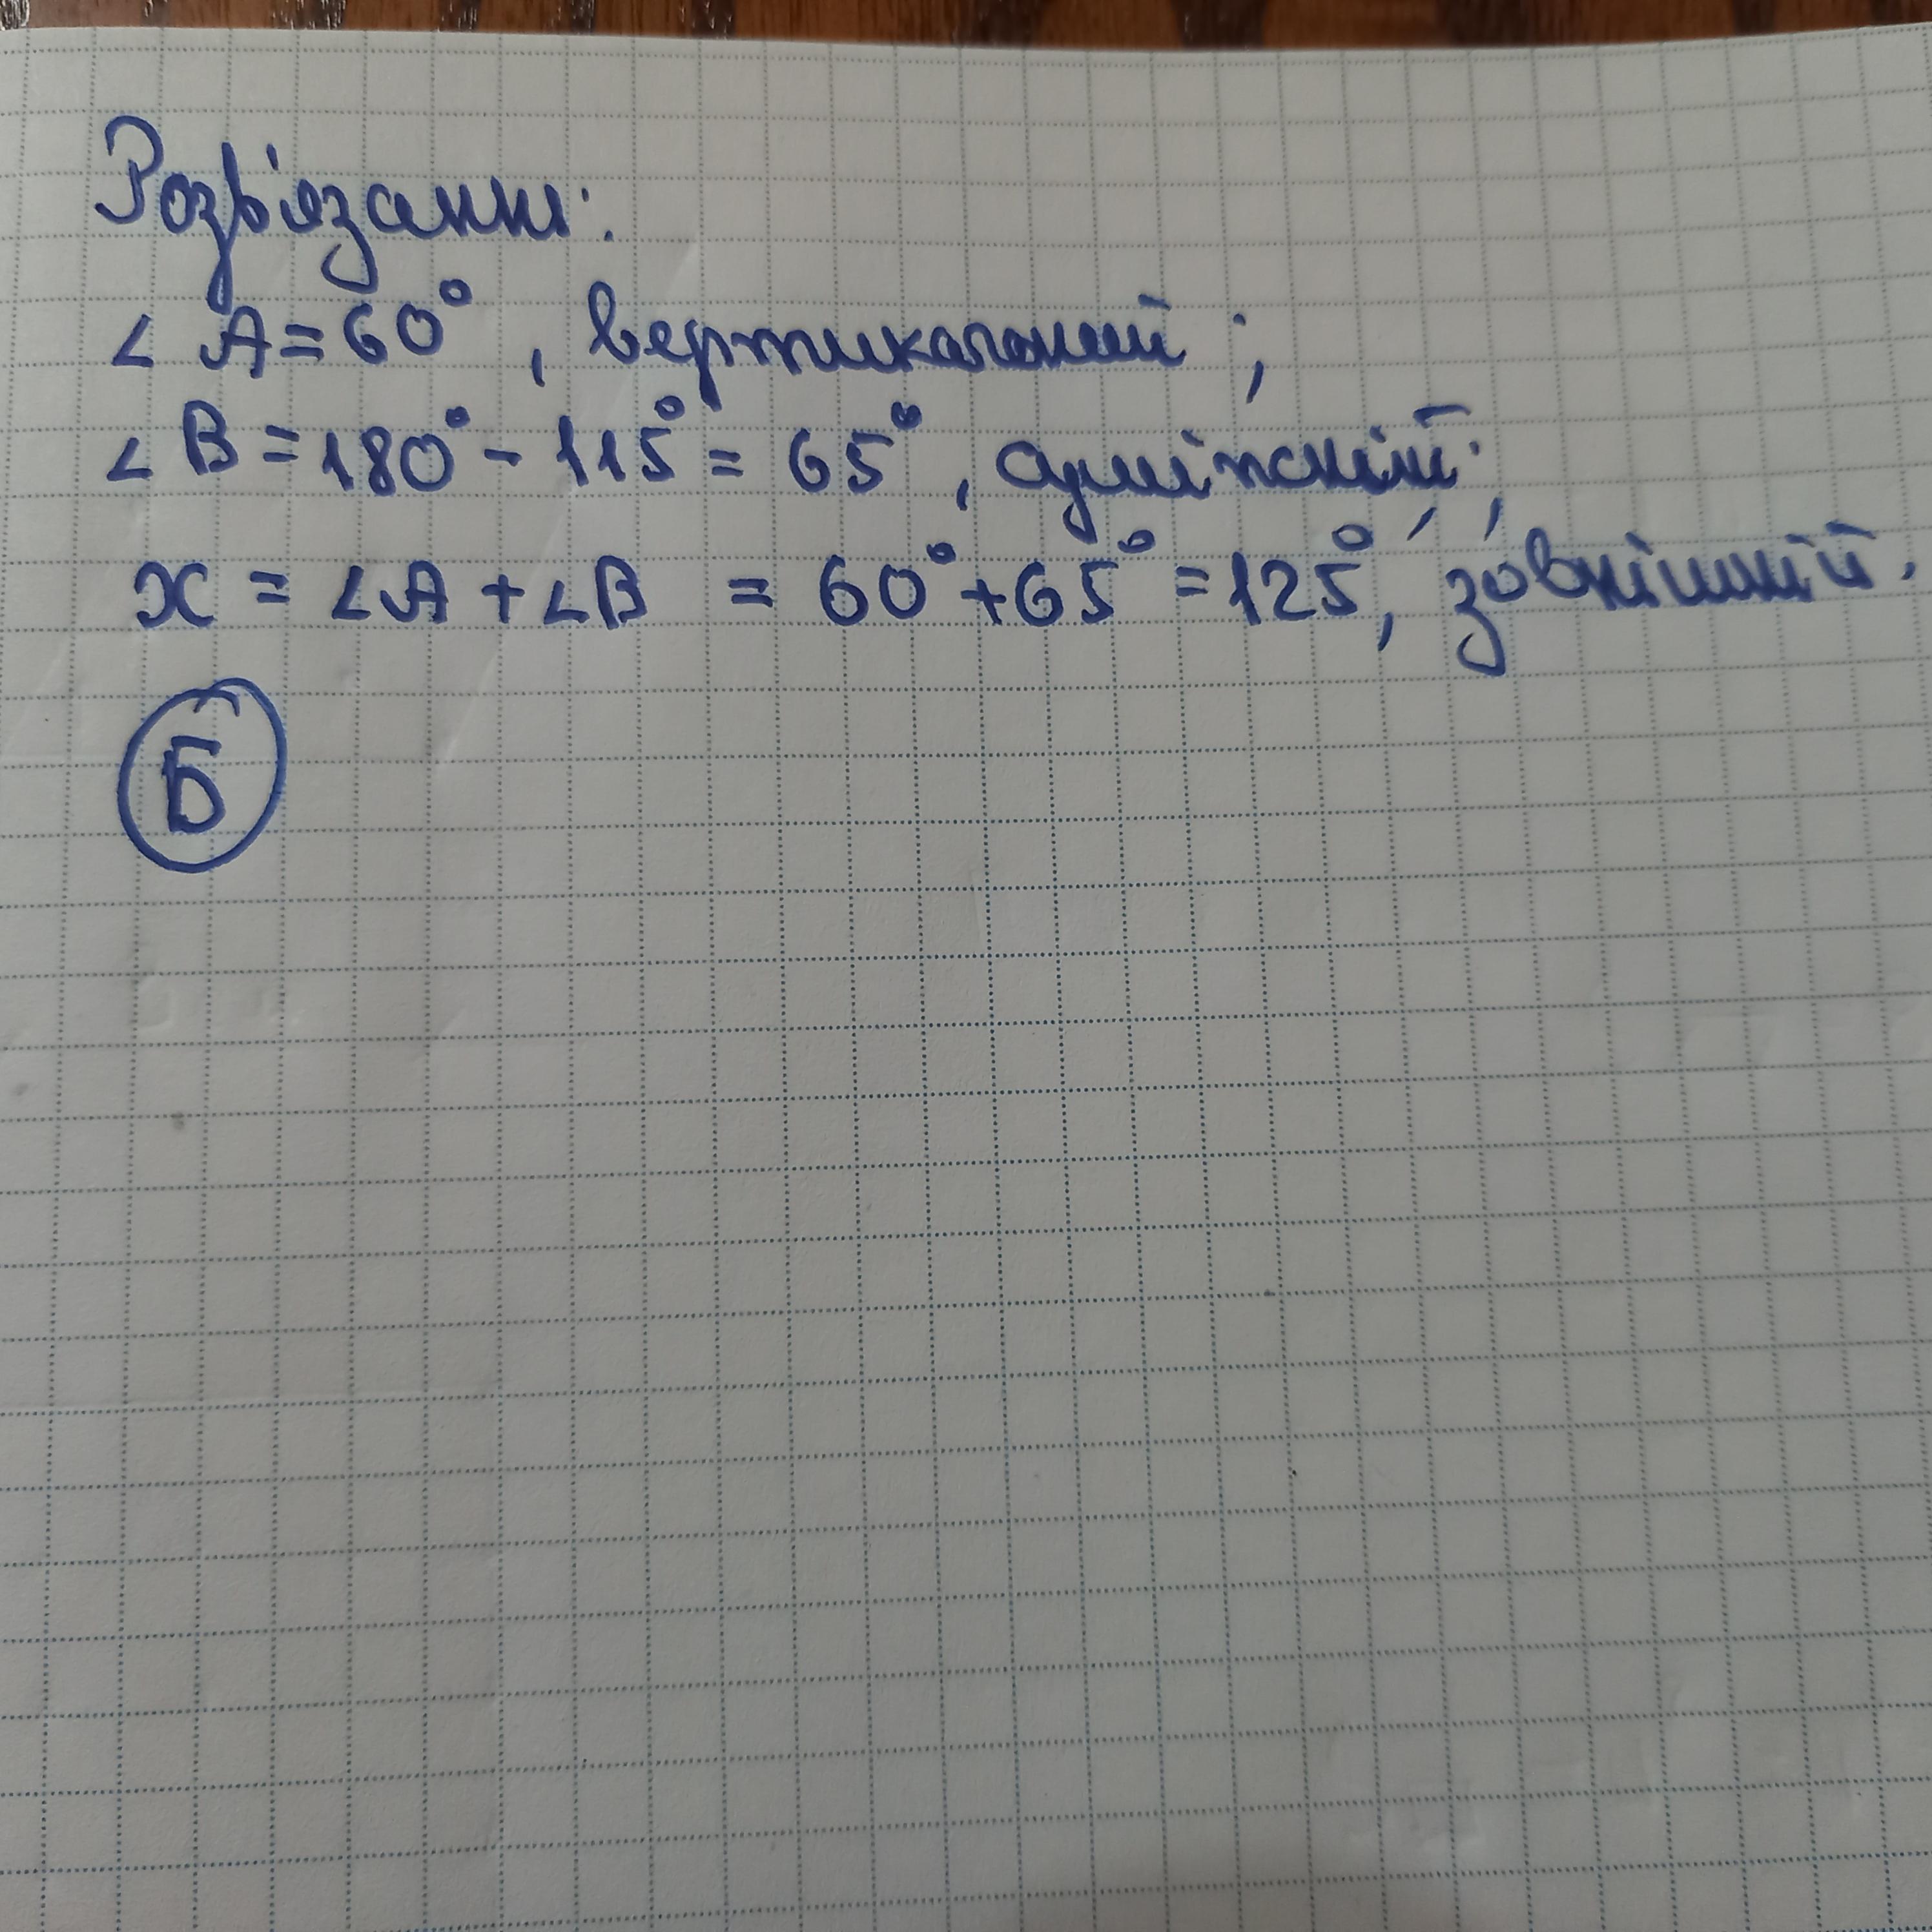 Розв'язання:
∠ A = 60°, вертикальний;
∠ B = 180° - 115° = 65°, суміжний;
x = ∠A + ∠B = 60° + 65° = 125°, зовнішній.
Б